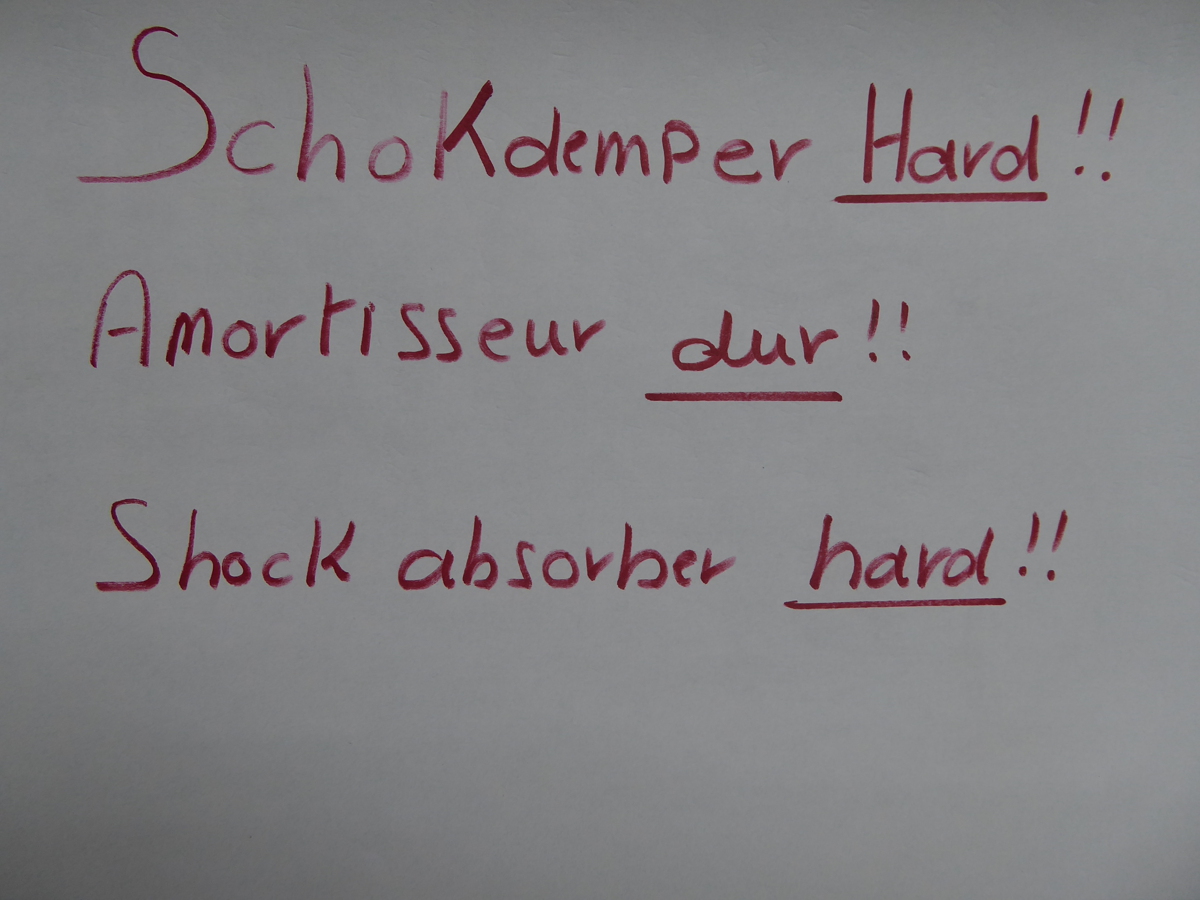 Schokdemper Hard!!
Amortisseur dur!!
Shock absorber hard!!